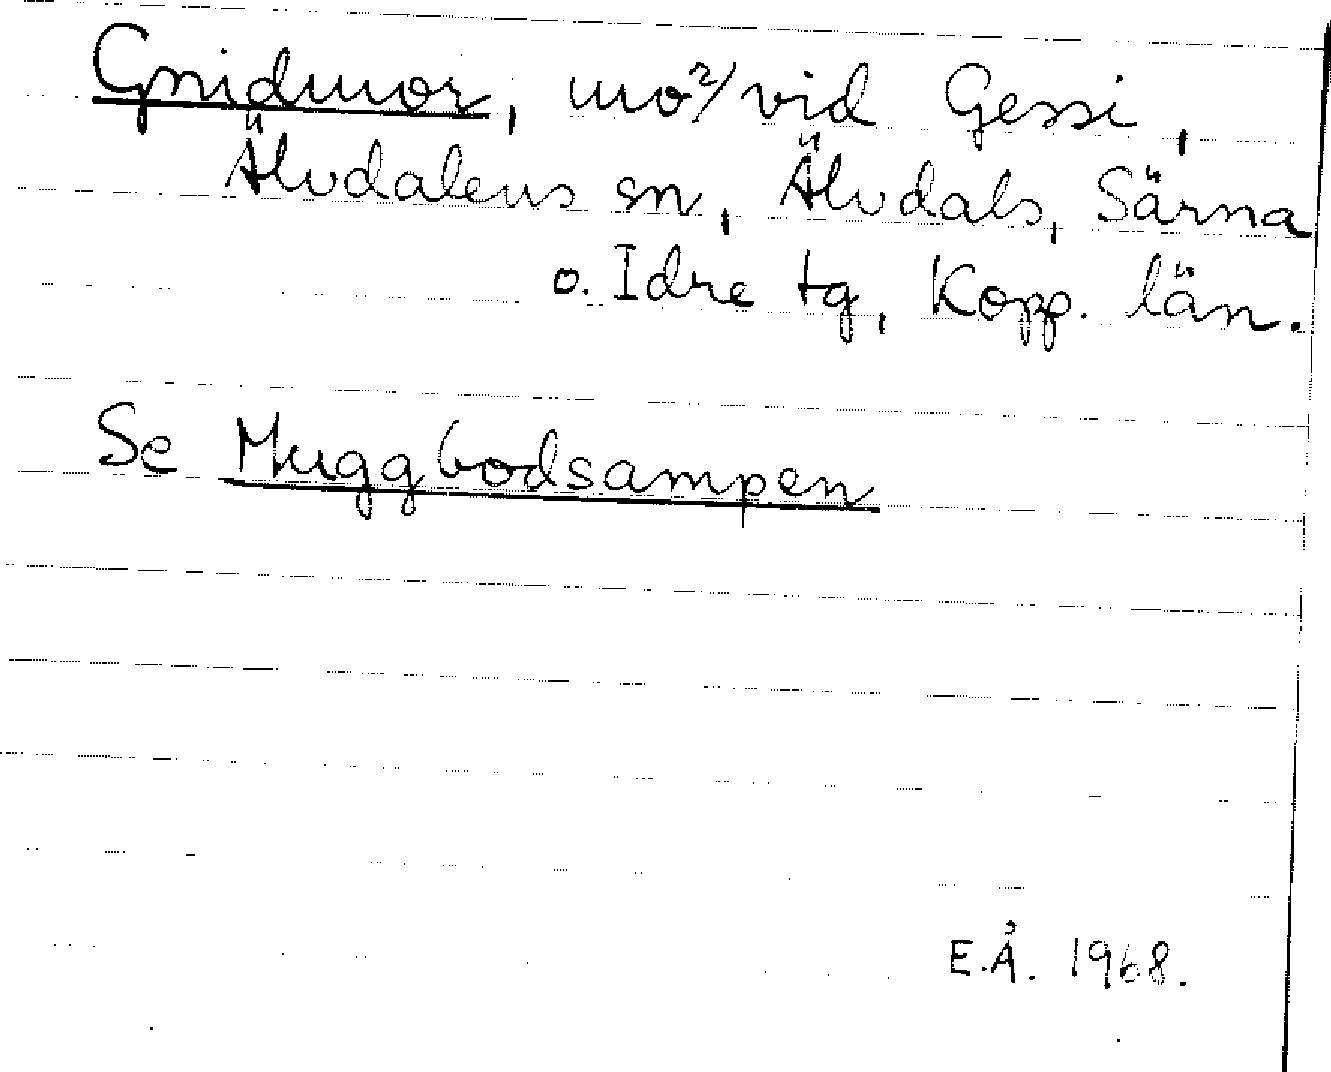 Gnidmor, mo?/ vid Gessi,
Älvdalens sn, Älvdals, Särna
o. Idre tg, Kopp. län.
Se Muggbodsampen
E.Å. 1968.